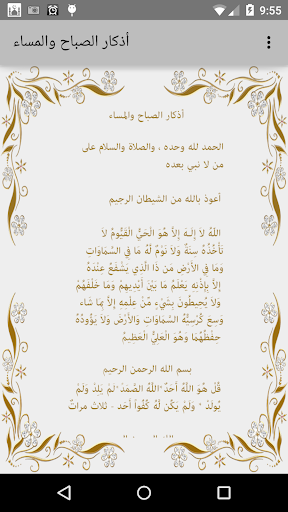 9:55
أذكار الصباح والمساء
أذكار الصباح والمساء
الحمد لله وحده ، والصلاة والسلام على
من لا نبي بعده
أعوذ بالله من الشيطان الرجيم
اللَّهُ لاَ إِلَـهَ إِلاَّ هُوَ الْحَيُّ الْقَيُّومُ لاَ
تَأْخُذُهُ سِنَةٌ وَلاَ نَوْمٌ لَّهُ مَا فِي السَّمَاوَاتِ
وَمَا فِي الأَرْضِ مَن ذَا الَّذِي يَشْفَعُ عِنْدَهُ
إِلاَّ بِإِذْنِهِ يَعْلَمُ مَا بَيْنَ أَيْدِيهِمْ وَمَا خَلْفَهُمْ
وَلاَ يُحِيطُونَ بِشَيْءٍ مِّنْ عِلْمِهِ إِلاَّ بِمَا شَاء
وَسِعَ كُرْسِيُّهُ السَّمَاوَاتِ وَالأَرْضَ وَلاَ يَؤُودُهُ
حِفْظُهُمَا وَهُوَ الْعَلِيُّ الْعَظِيمُ
بسم الله الرحمن الرحيم
قُلْ هُوَ اللَّهُ أَحَدٌ ۝ اللَّهُ الصَّمَدُ ۝ لَمْ يَلِدْ وَلَمْ
يُولَدْ ۝ وَلَمْ يَكُن لَّهُ كُفُواً أَحَد - ثلاث مراتٌ